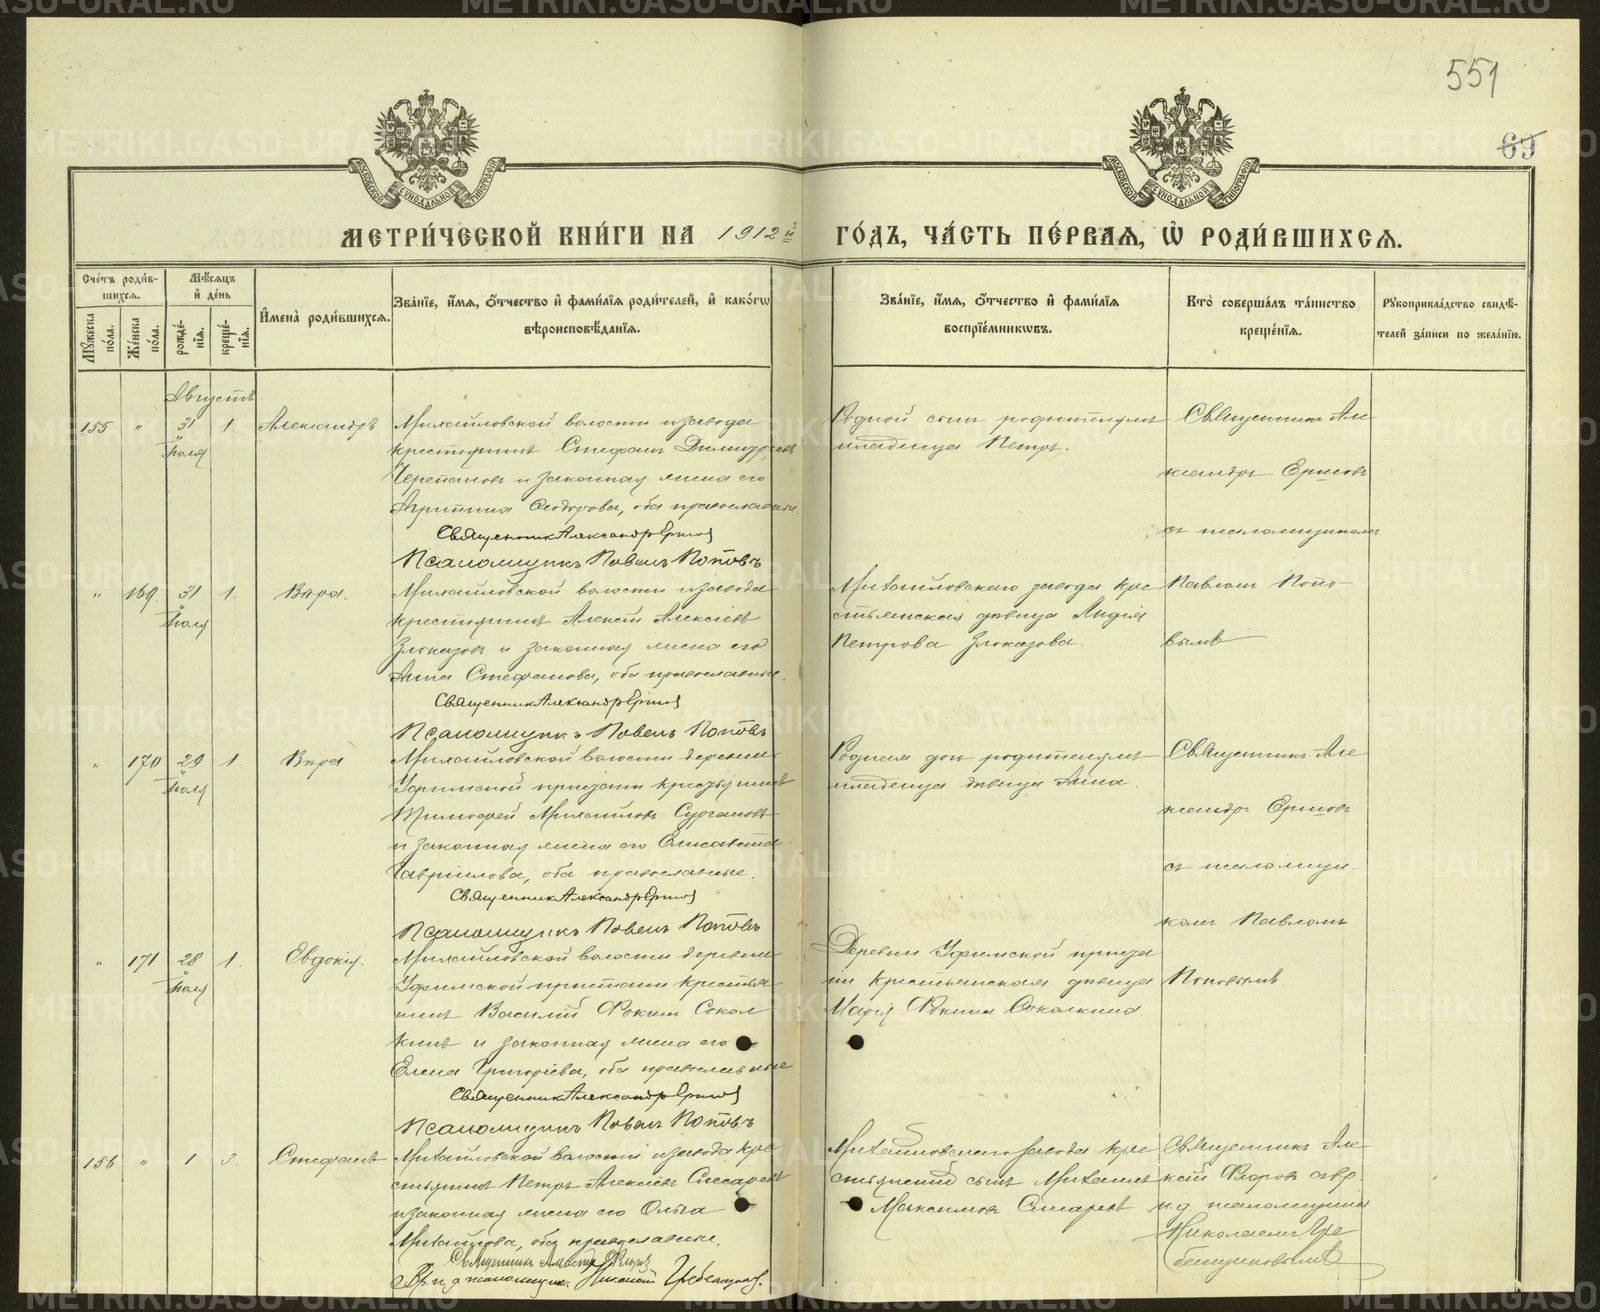 551
69
МЕТРИ́ЧЕСКОЙ КНИ́ГИ НА 1912й ГО́ДЪ, ЧА́СТЬ ПЕ́РВАЯ, Ѡ҆ РОДИ́ВШИХСЯ.
Сче́тъ роди́в-
шихся.
Мѣ́сяцъ
и҆ де́нь
Му́жеска
по́ла.
Же́нска
по́ла.
рожде́-
нїя.
креще́-
нїя.
И҆мена̀ роди́вшихся.
Зва́нїе, и҆́мя, ѻ҆́тчество и҆ фами́лїя роди́телей, и҆ како́гѡ
вѣроисповѣ́данїя.
Зва́нїе, и҆́мя, ѻ҆́тчество и҆ фами́лїя
воспрїе́мникѡвъ.
Кто̀ соверша́лъ та́инство
креще́нїя.
Рꙋкоприкла́дство свидѣ́-
телей за́писи по жела́нїю.
Августъ
155 " 31 Іюля 1. Александръ
Михайловской волости и завода
крестьянинъ Стефанъ Димитріевъ
Черепановъ и законная жена его
Агриппина Ѳеодорова, оба православные.
Священникъ Александръ Ершовъ
Псаломщикъ Павелъ Поповъ
Родной сынъ родителямъ
младенца Петръ.
Священникъ Але-
ксандръ Ершовъ
съ псаломщикомъ
" 169 31 Іюля 1. Вѣра.
Михайловской волости и завода
крестьянинъ Алексѣй Алексіевъ
Злоказовъ и законная жена его
Анна Стефанова, оба православные.
Священникъ Александръ Ершовъ
Псаломщикъ Павелъ Поповъ
Михайловскаго завода кре-
стьянская дѣвица Лидія
Петрова Злоказова.
Павломъ Попо-
вымъ
" 170 29 Іюля 1. Вѣра
Михайловской волости деревни
Уфимской пристани крестьянинъ
Тимофей Михаиловъ Сургановъ
и законная жена его Елисавета
Гавріилова, оба православные.
Священникъ Александръ Ершовъ
Псаломщикъ Павелъ Поповъ
Родная дочь родителямъ
младенца дѣвица Анна.
Священникъ Але-
ксандръ Ершовъ
съ псаломщи-
комъ Павломъ
" 171 28 Іюля 1. Евдокія.
Михайловской волости деревни
Уфимской пристани крестья-
нинъ Василій Фокинъ Сокол-
кинъ и законная жена его
Елена Григоріева, оба православные
Священникъ Александръ Ершовъ
Псаломщикъ Павелъ Поповъ
Деревни Уфимской приста-
ни крестьянская дѣвица
Марія Фокина Соколкина
Поповымъ.
156 " 1 3. Стефанъ
Михайловской волости и завода кре-
стьянинъ Петръ Алексіевъ Слесаревъ
и законная жена его Ольга
Михайлова, оба православные.
Священникъ
Вр. и. д. псаломщика Николай Гребенщиковъ.
Михайловскаго завода кре-
стьянскій сынъ Михаилъ
Максимовъ Слесаревъ
Священникъ Але-
и. д. псаломщика
Николаемъ Гре-
бенщиковымъ